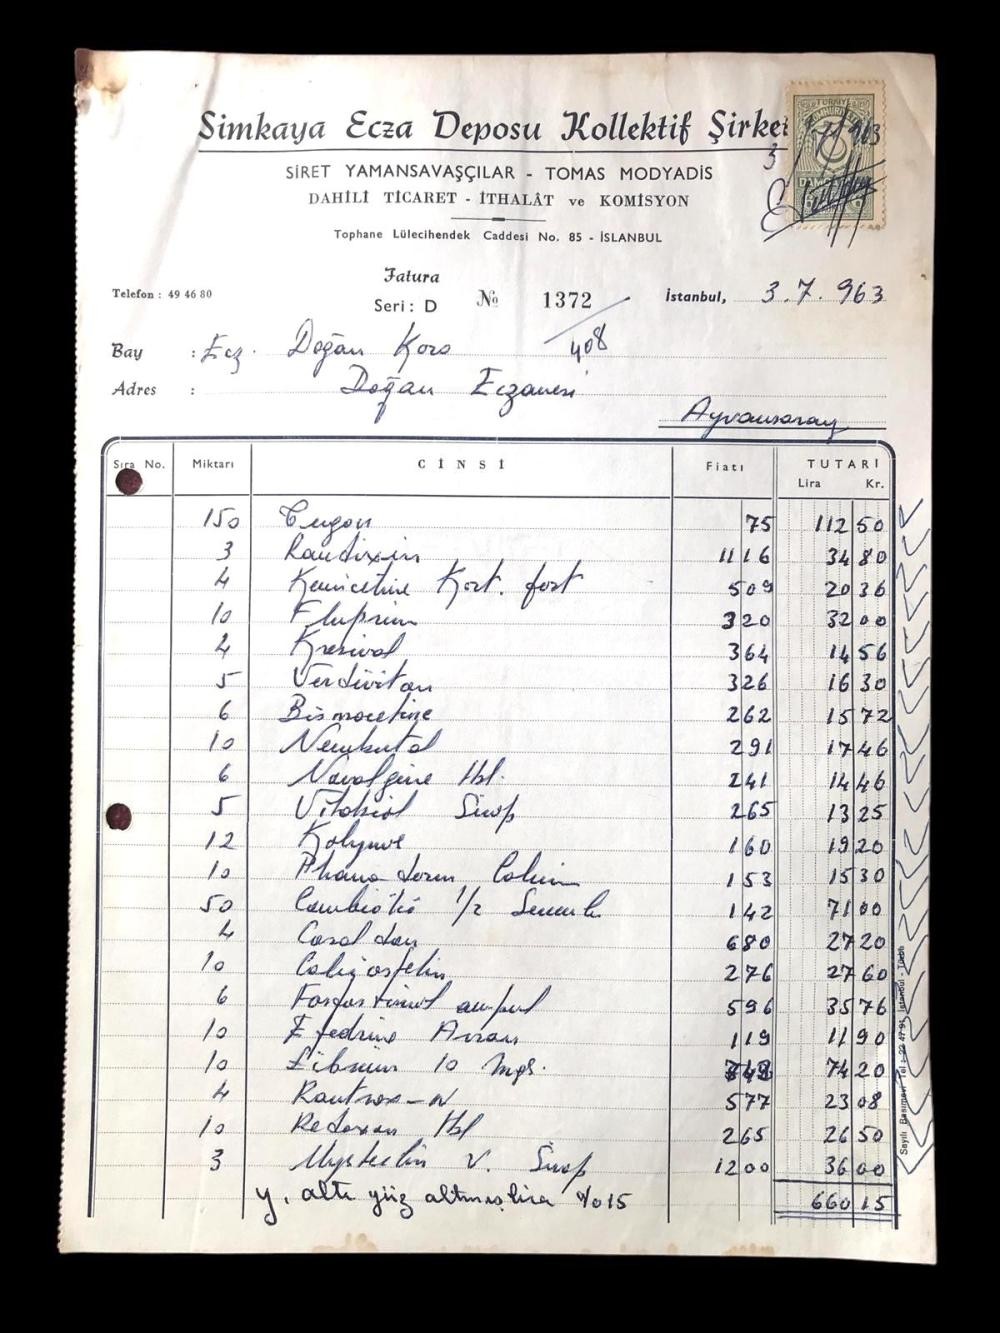 Simkaya Ecza Deposu Kollektif Şirket
SİRET YAMANSAVAŞÇILAR - TOMAS MODYADİS
DAHİLÎ TİCARET - İTHALÂT ve KOMİSYON
Tophane Lülecihendek Caddesi No. 85 - İSLANBUL
3 7 963
Fatura
Telefon : 49 46 80
Seri : D № 1372 İstanbul, 3.7.963
408
Bay : Ecz. Doğan Koro
Adres : Doğan Eczanesi
Ayvansaray
Sıra No. Miktarı CİNSİ Fiatı TUTARI
Lira Kr.
150 75 112 50
3 Raudixin 11 16 34 80
4 Kemicetine Kort. fort 5 09 20 36
10 Fluprim 3 20 32 00
4 Kresival 3 64 14 56
5 Verdivitan 3 26 16 30
6 Bismocetine 2 62 15 72
10 Nembutal 2 91 17 46
6 Novalgine tbl. 2 41 14 46
5 Sirop 2 65 13 25
12 Kolynos 1 60 19 20
10 1 53 15 30
50 Combiotic 1/2 1 42 71 00
4 6 80 27 20
10 2 76 27 60
6 ampul 5 96 35 76
10 Efedrine 1 19 11 90
10 Librium 10 mgr. 74 20
4 Rautrax-N 5 77 23 08
10 Redoxon tbl 2 65 26 50
3 Mysteclin V. Sirop 12 00 36 00
y, altı yüz altmış lira %015 660 15
Sayılı Basımevi Tel : 22 47 91 İstanbul - Türbe